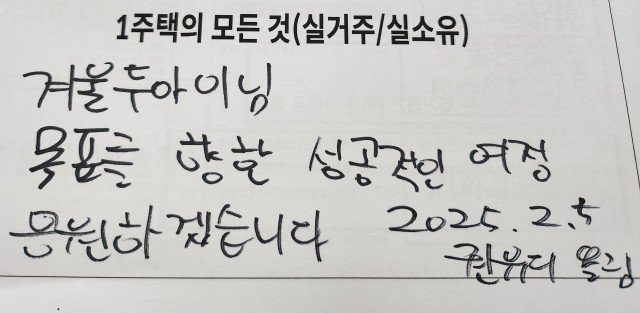 1주택의 모든 것(실거주/실소유)
겨울두아이님
목표를 향한 성공적인 여정
응원하겠습니다 2025.2.5
권유디 올림